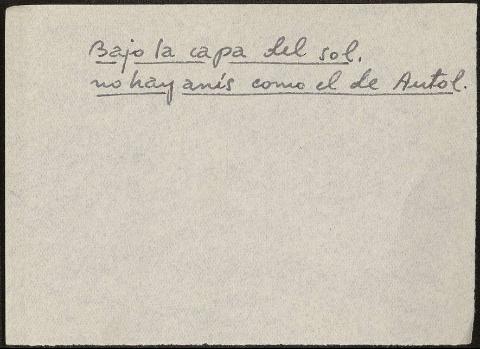 Bajo la capa del sol,
no hay anís como el de Autol.